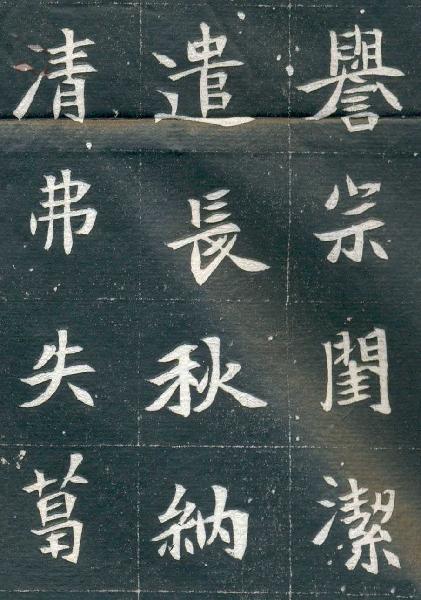 譽宗閨潔
遣長秋納
清弗失葛